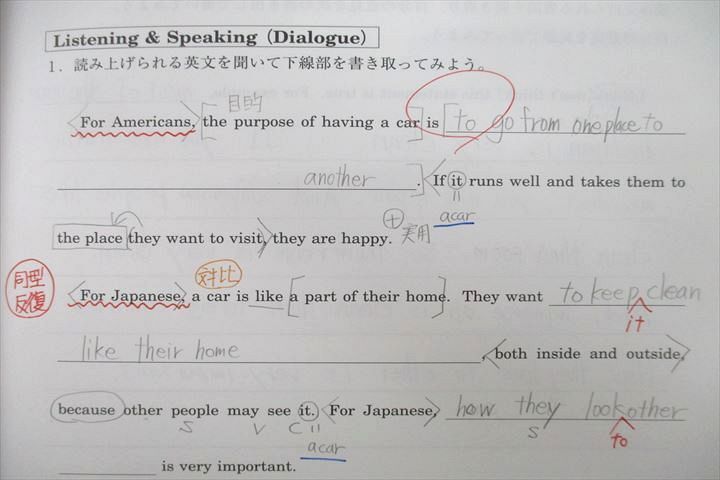 Listening & Speaking (Dialogue)
1. 読み上げられる英文を聞いて下線部を書き取ってみよう。
目的
For Americans, the purpose of having a car is to go from one place to
another. If it runs well and takes them to
= a car
the place they want to visit, they are happy. + 実用
同型反復
対比
For Japanese, a car is like a part of their home. They want to keep clean
it
like their home, both inside and outside,
because other people may see it. For Japanese, how they look other
S V C = S to
a car
is very important.